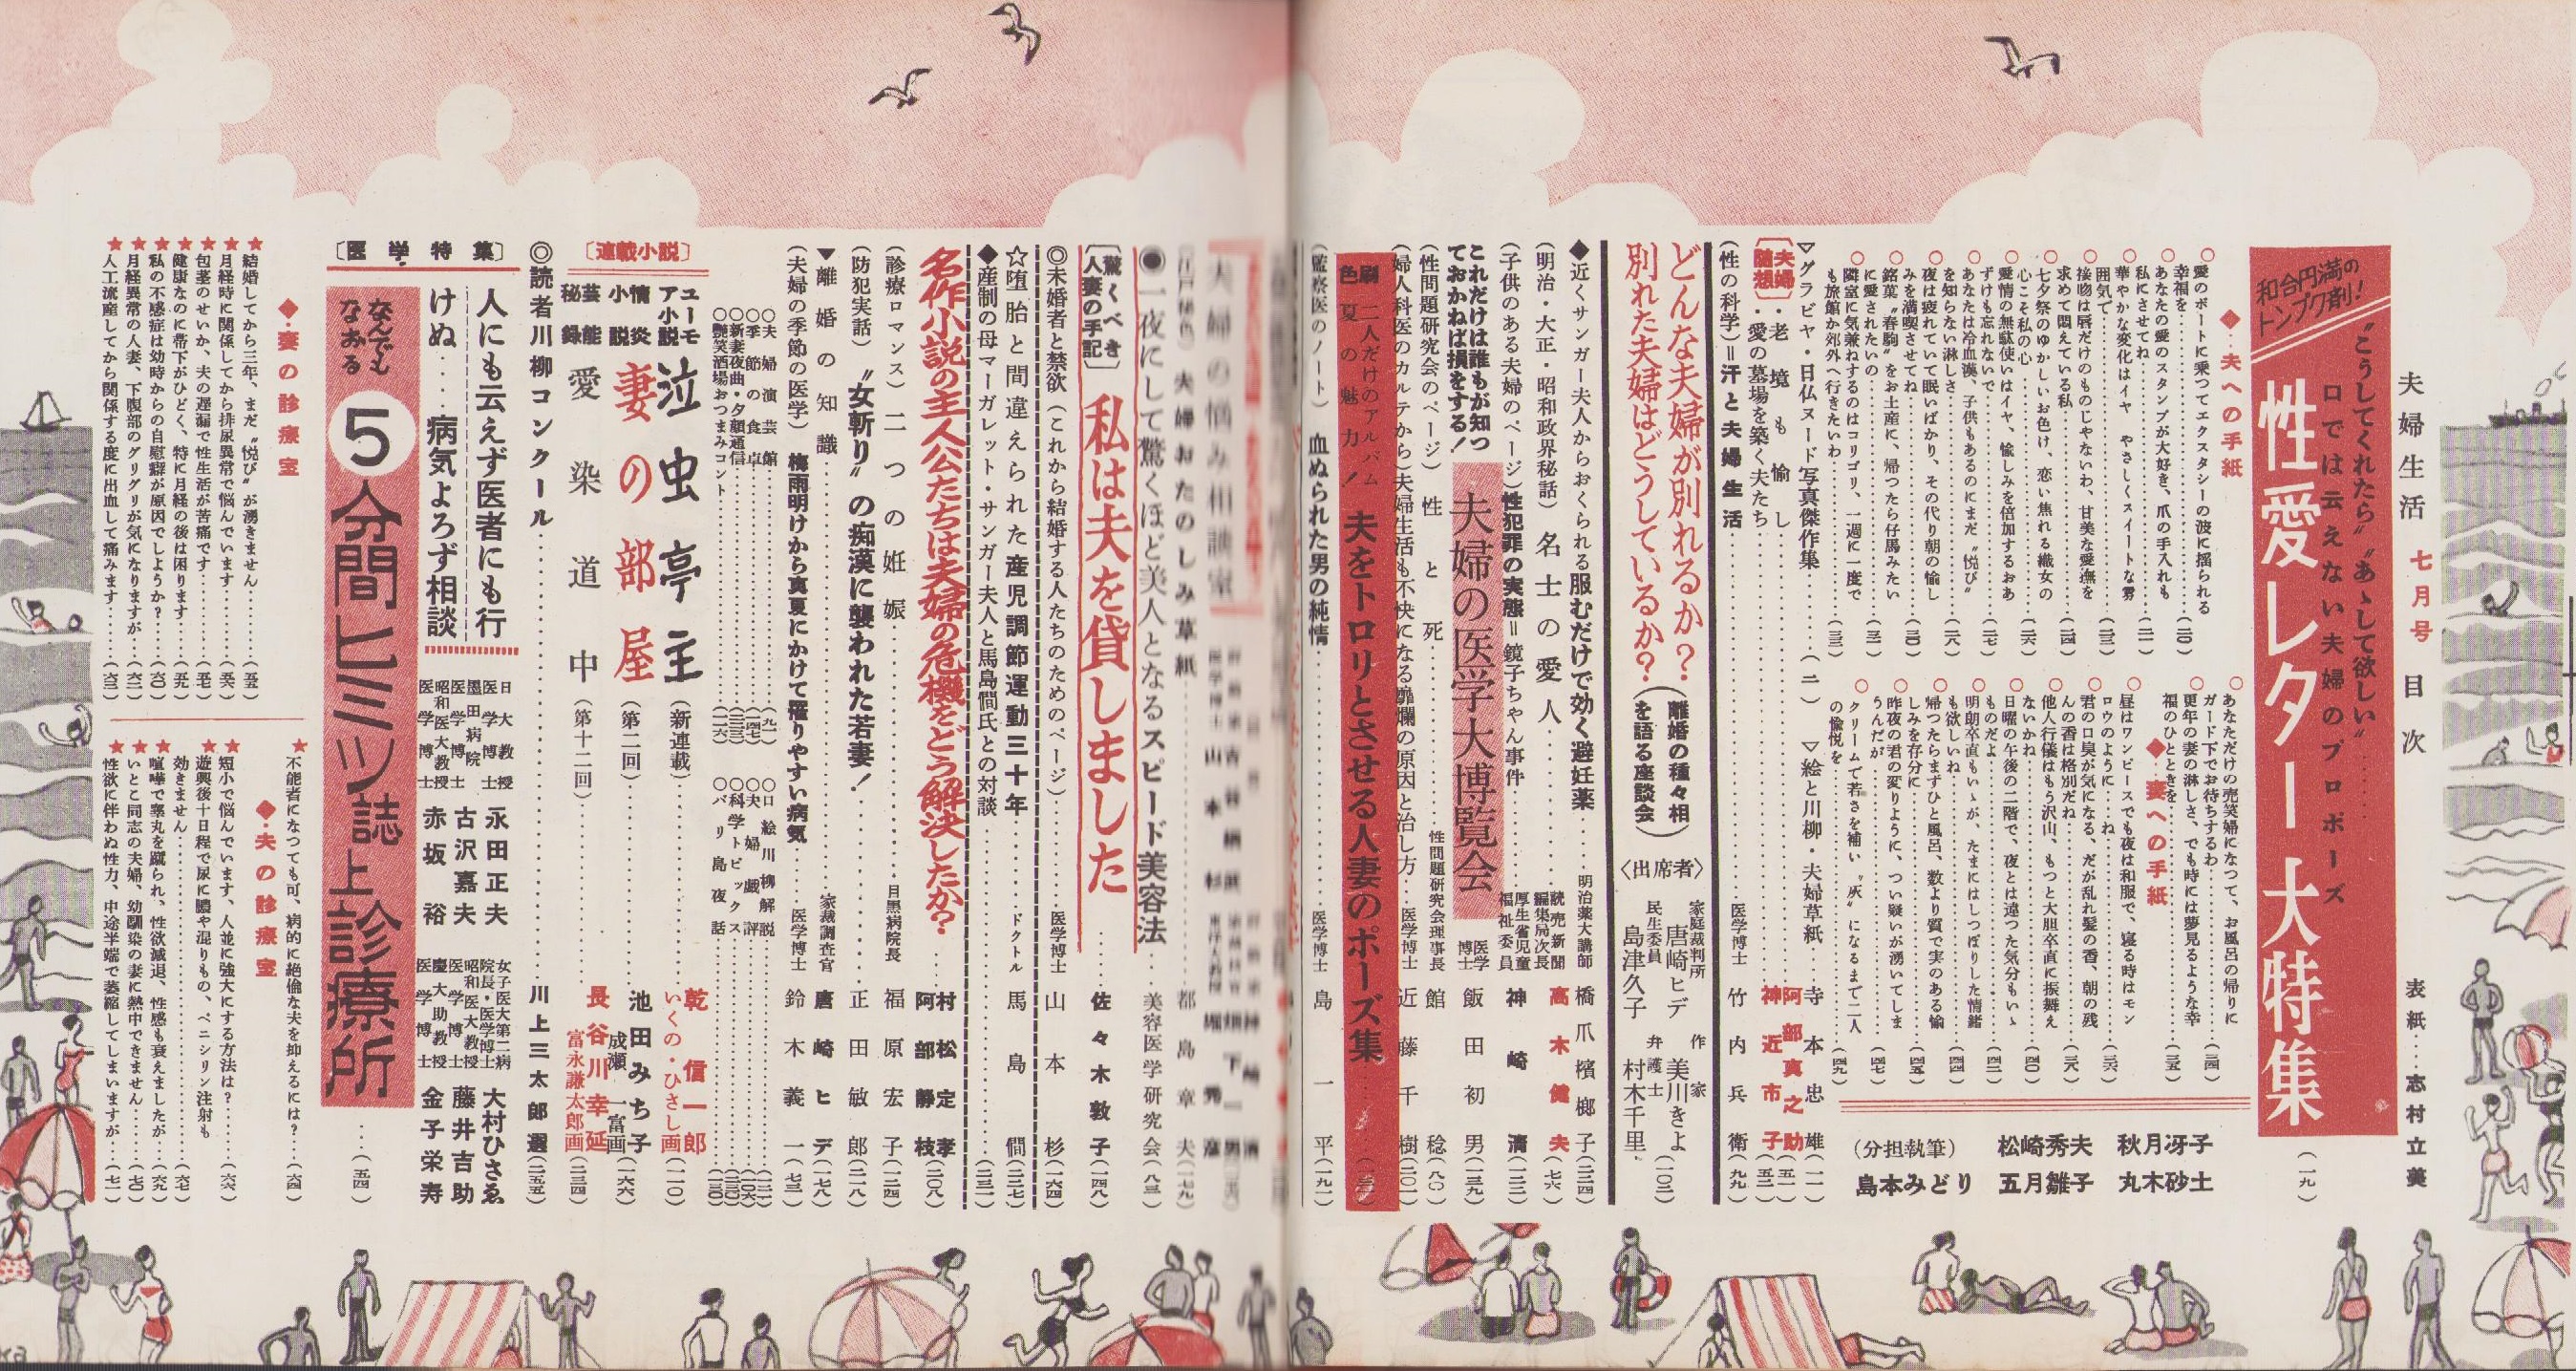 夫婦生活 七月号 目次
表紙……志村立美
和合円満の
トンプク剤！
〝こうしてくれたら〟〝あゝして欲しい〟……
口では云えない夫婦のプロポーズ
性愛レター大特集
（一九）
◆・夫への手紙
○愛のボートに乗つてエクスタシーの波に揺られる
幸福を
○あなたの愛のスタンプが大好き、爪の手入れも
私にさせてね
○華やかな変化はイヤ やさしくスイートな雰
囲気で
○接吻は唇だけのものじやないわ、甘美な愛撫を
求めて悶えている私
○七夕祭のゆかしいお色け、恋い焦れる織女の
心こそ私の心
○愛情の無駄使いはイヤ、愉しみを倍加するおあ
ずけも忘れないで
○あなたは冷血漢、子供もあるのにまだ〝悦び〟
を知らない淋しさ
○夜は疲れていて眠いばかり、その代り朝の愉し
みを満喫させてね
○銘菓〝春駒〟をお土産に、帰つたら仔馬みたい
に愛されたいの
○隣室に気兼ねするのはコリゴリ、一週に一度で
も旅館か郊外へ行きたいわ
○あなただけの売笑婦になつて、お風呂の帰りに
ガード下でお待ちするわ
○更年の妻の淋しさ、でも時には夢見るような幸
福のひとときを
◆・妻への手紙
○昼はワンピースでも夜は和服で、寝る時はモン
ロウのように
○君の口臭が気になる、だが乱れ髪の香、朝の残
んの香は格別だね
○他人行儀はもう沢山、もつと大胆卒直に振舞え
ないかね
○日曜の午後の二階で、夜とは違つた気分もいゝ
ものだよ
○明朗卒直もいゝが、たまにはしつぽりした情緒
も欲しいね
○帰つたらまずひと風呂、数より質で実のある愉
しみを存分に
○昨夜の君の変りように、つい疑いが湧いてしま
うんだが
○クリームで若さを補い〝灰〟になるまで二人
の愉悦を
（分担執筆）
秋月冴子
丸木砂土
松崎秀夫
五月雛子
島本みどり
▽グラビヤ・日仏ヌード写真傑作集……（一） ▽絵と川柳・夫婦草紙……寺本忠雄（一一）
〔夫婦随想〕
・老境も愉し……阿部真之助（五一）
・愛の墓場を築く夫たち……神近市子（五二）
（性の科学）＝汗と夫婦生活……医学博士 竹内兵衛（九九）
どんな夫婦が別れるか？
別れた夫婦はどうしているか？
（離婚の種々相
を語る座談会）
〈出席者〉
家庭裁判所 唐崎ヒデ
民生委員 島津久子
作家 美川きよ
弁護士 村木千里
（一〇二）
◆近くサンガー夫人からおくられる服むだけで効く避妊薬……明治薬大講師 橋爪檳榔子（三二四）
（明治・大正・昭和政界秘話）名士の愛人……読売新聞編集局次長 高木健夫（七六）
（子供のある夫婦のページ）性犯罪の実態＝鏡子ちゃん事件……厚生省児童福祉委員 神崎清（一三二）
これだけは誰もが知つ
ておかねば損をする！
夫婦の医学大博覧会
医学博士 飯田初男（一三九）
（性問題研究会のページ）性と死……性問題研究会理事長 館稔（八〇）
（婦人科医のカルテから）夫婦生活も不快になる靡爛の原因と治し方……医学博士 近藤千樹（三〇一）
色刷 二人だけのアルバム
夏の魅力！
夫をトロリとさせる人妻のポーズ集
（監察医のノート）血ぬられた男の純情……医学博士 島一平（一九一）
夫婦の悩み相談室
夫婦おたのしみ草紙……都島章夫（一七九）
◉一夜にして驚くほど美人となるスピード美容法……美容医学研究会（八三）
〔驚くべき
人妻の手記〕
私は夫を貸しました
……佐々木敦子（一四八）
◎未婚者と禁欲（これから結婚する人たちのためのページ）……医学博士 山本杉（一六四）
☆堕胎と間違えられた産児調節運動三十年……ドクトル 馬島僩（三三七）
◆産制の母マーガレット・サンガー夫人と馬島僩氏との対談……（三三一）
名作小説の主人公たちは夫婦の危機をどう解決したか？
……村松定孝
阿部静枝（二〇八）
（診療ロマンス）二つの妊娠……目黒病院長 福原宏子（一二四）
（防犯実話）〝女斬り〟の痴漢に襲われた若妻！……正田敏郎（二一八）
▼離婚の知識……家裁調査官 唐崎ヒデ（七八）
（夫婦の季節の医学）梅雨明けから真夏にかけて罹りやすい病気……医学博士 鈴木義一（七三）
○夫婦演芸館
○季節の食卓
○新妻夜曲・夕顔通信
○艶笑酒場おつまみコント
○口絵川柳解説
○夫婦戯評
○科学トピックス
○バリ島夜話
〔連載小説〕
ユーモア小説 泣虫亭主（新連載）……乾信一郎 いくの・ひさし画（一一〇）
情炎小説 妻の部屋（第二回）……池田みち子 成瀬一富画（一六六）
芸能秘録 愛染道中（第十二回）……長谷川幸延 富永謙太郎画（三三四）
◎読者川柳コンクール……川上三太郎選（三五五）
〔医学特集〕
人にも云えず医者にも行
けぬ……病気よろず相談
日大教授医学博士 永田正夫
墨田病院医学博士 古沢嘉夫
昭和医大教授医学博士 赤坂裕
女子医大第二病院長・医学博士 大村ひさゑ
昭和医大教授医学博士 藤井吉助
慶大助教授医学博士 金子栄寿
なんでも
なおる
5分間ヒミツ誌上診療所
……（五四）
◆・妻の診療室
★結婚してから三年、まだ〝悦び〟が湧きません……（五五）
★月経時に関係してから排尿異常で悩んでいます……（五六）
★包茎のせいか、夫の遅漏で性生活が苦痛です……（五七）
★健康なのに帯下がひどく、特に月経の後は困ります……（五九）
★私の不感症は幼時からの自慰癖が原因でしようか？……（六〇）
★月経異常の人妻、下腹部のグリグリが気になりますが……（六二）
★人工流産してから関係する度に出血して痛みます……（六三）
◆・夫の診療室
★不能者になつても可、病的に絶倫な夫を抑えるには？……（六四）
★短小で悩んでいます、人並に強大にする方法は？……（六六）
★遊興後十日程で尿に膿や混りもの、ペニシリン注射も
効きません……（六七）
★喧嘩で睾丸を蹴られ、性欲減退、性感も衰えましたが……（六九）
★いとこ同志の夫婦、幼馴染の妻に熱中できません……（七〇）
★性欲に伴わぬ性力、中途半端で萎縮してしまいますが……（七一）